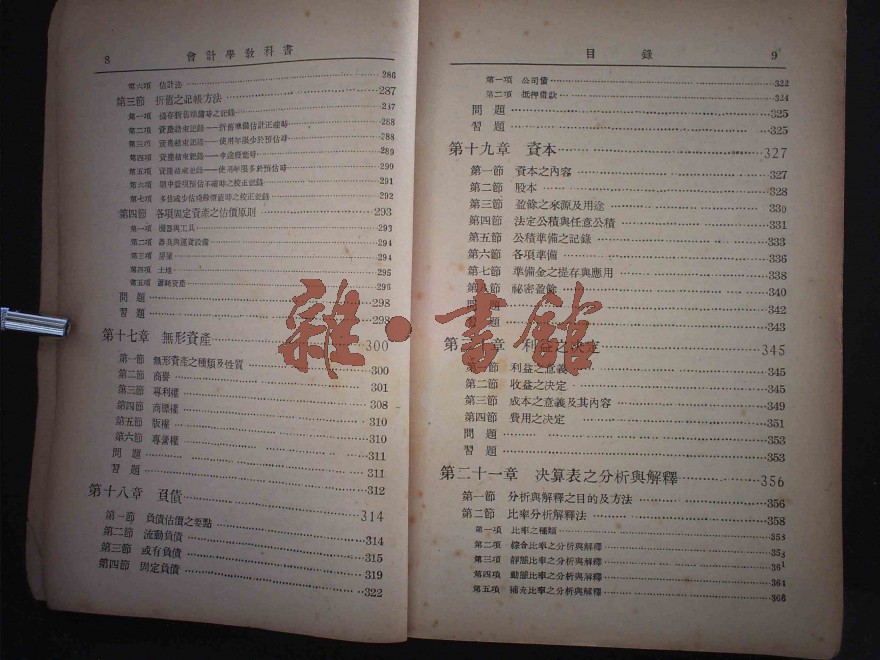 8 會計學教科書
第六項 估計法 286
第三節 折舊之記帳方法 287
第一項 備存折舊準備時之記錄 287
第二項 資產結束記錄——折舊準備估計正確時 288
第三項 資產結束記錄——使用年限少於預估時 288
第四項 資產結束記錄 289
第五項 資產結束記錄——使用年限多於預估時 290
第六項 期中發現預估不確時之校正記錄 291
第七項 多估或少估殘餘價值時之校正記錄 292
第四節 各項固定資產之估價原則 293
第一項 機器與工具 293
第二項 器具與運貨設備 294
第三項 房屋 294
第四項 土地 295
第五項 遞耗資產 296
問題 298
習題 298
第十七章 無形資產 300
第一節 無形資產之種類及性質 300
第二節 商譽 301
第三節 專利權 308
第四節 商標權 310
第五節 版權 310
第六節 專業權 311
問題 311
習題 312
第十八章 負債 314
第一節 負債估價之要點 314
第二節 流動負債 315
第三節 或有負債 319
第四節 固定負債 322
目錄 9
第一項 公司債 322
第二項 抵押借款 324
問題 325
習題 325
第十九章 資本 327
第一節 資本之內容 327
第二節 股本 328
第三節 盈餘之來源及用途 330
第四節 法定公積與任意公積 331
第五節 公積準備之記錄 333
第六節 各項準備 336
第七節 準備金之提存與應用 338
第八節 祕密盈餘 340
問題 342
習題 343
第二十章 利益之決定 345
第一節 利益之意義 345
第二節 收益之決定 345
第三節 成本之意義及其內容 349
第四節 費用之決定 351
問題 353
習題 353
第二十一章 決算表之分析與解釋 356
第一節 分析與解釋之目的及方法 356
第二節 比率分析解釋法 358
第一項 比率之種類 358
第二項 綜合比率之分析與解釋 358
第三項 靜態比率之分析與解釋 361
第四項 動態比率之分析與解釋 364
第五項 補充比率之分析與解釋 366
雜·書館